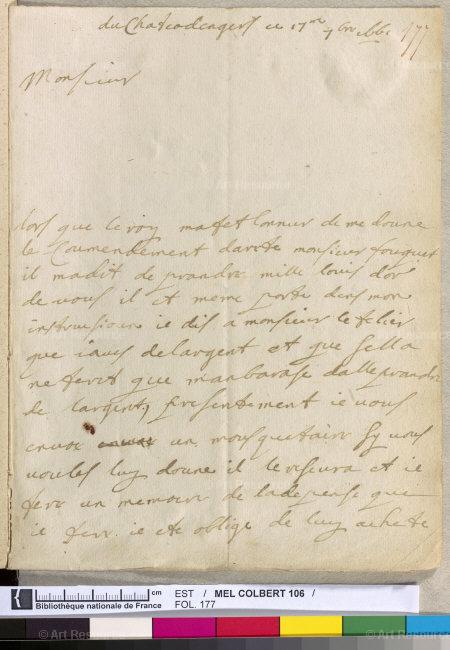 du Chateodengers ce 17me 7bre 1661 177
Monsieur
lors que le roy ma fet lonnur de me doune
le Coumendement dareté monsieur fouquet
il madit de prandre mille louis d'or
de vous il et meme porte dens mon
instrusion ie dis a monsieur le telier
que iaves delargent et que sella
ne feret que manbarase dalle prandre
de largent, presentement ie vous
envoe un mousquetaire sy vous
voules luy doune il le reseura et ie
fere un memoire de ladepense que
ie fere ie ete oblige de luy achete
cm
Bibliothèque nationale de France
EST / MEL COLBERT 106 /
FOL. 177
© Art Resource
© Art Resource